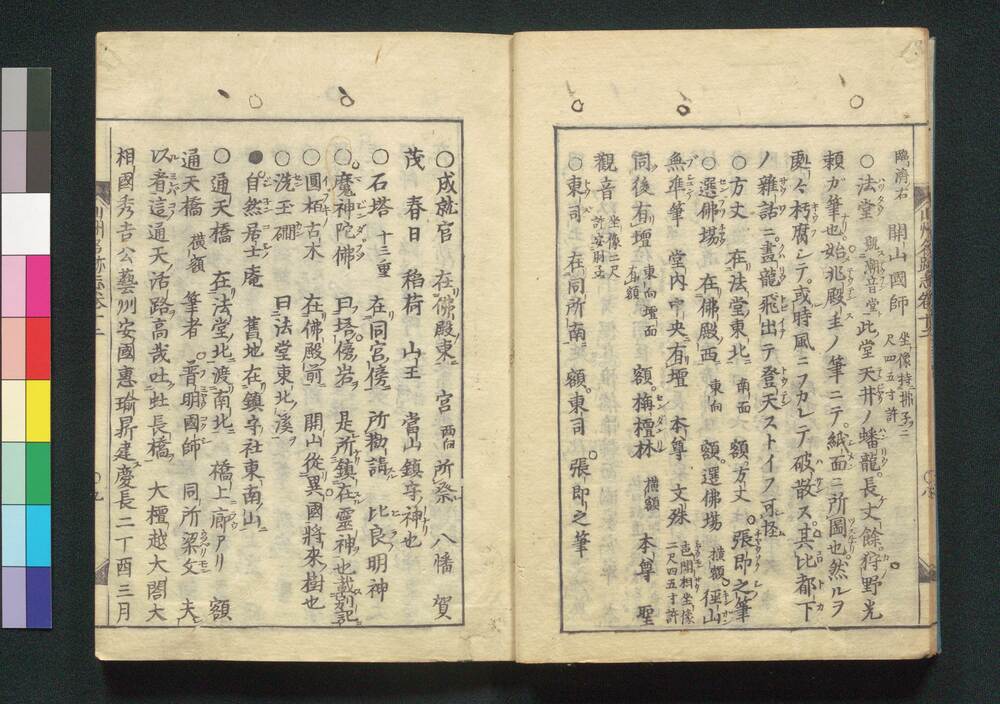 臨濟右 開山國師 坐像持拂子ニ尺四五寸許
○法堂 號潮音堂 此堂天井ノ蟠龍長丈餘狩野光
頼ガ筆也始兆殿主ノ筆ニテ紙面ニ所圖也然ルヲ
处々朽腐シテ或時風ニフカレテ破散ス其比都下
ノ雜話ニ晝龍飛出テ登天ストイフ可怪
○方丈 在法堂東北 南面 額方丈 張即之筆
○選佛場 在佛殿西 東向 額選佛場 横額 徑山
無準筆 堂内中央有壇 本尊 文殊 坐像二尺四五寸許
同後有壇 東向壇面有額 額梅檀林 横額 本尊 聖
觀音 坐像二尺許安厨子
○東司 在同所南 額東司 張即之筆
○成就宮 在佛殿東 宮西向 所祭 八幡 賀
茂 春日 稲荷 山王 當山鎮守神也
○石塔 十三重 在同宮傍 所勧請 比良明神
○魔神陀佛 曰塔傍岩 是所鎮在靈神也載別記
○圓栢古木 在佛殿前 開山從異國將來樹也
○洗玉澗 曰法堂東北溪
●自然居士庵 舊地在鎮守社東南山
○通天橋 在法堂北渡南北 橋上廊アリ 額
通天橋 横額 筆者 普明國師 同所梁文 夫
以者這通天活路高哉吐虹長橋 大檀越大閤大
相國秀吉公藝州安國惠瑜昇建慶長二丁酉三月
山州名跡志卷十二